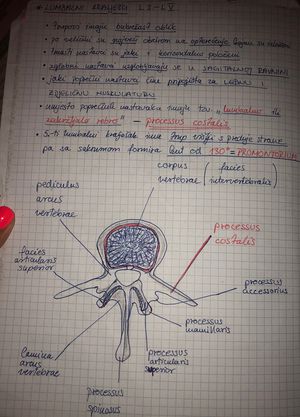 * LUMBALNI KRALJEŠCI L I - L V
* trupovi imaju bubrežast oblik
* po veličini su najveći obzirom na opterećenje kojem su izloženi
* trnasti nastavci su jaki i horizontalno položeni
* zglobni nastavci su u SAGITALNOJ RAVNINI
* jaki poprečni nastavci čine pripojišta za LEĐNU
MUSKULATURU
* umjesto poprečnih nastavaka imaju tzv. "lumbalno ili
rebro" - processus costalis
* 5-ti lumbalni kralježak ima trup viši s prednje strane
pa sa sakrumom formira kut od 130° = PROMONTORIUM
corpus
vertebrae
(facies
intervertebralis)
pediculus
arcus
vertebrae
processus
costalis
facies
articularis
superior
processus
accessorius
processus
mamillaris
lamina
arcus
vertebrae
processus
articularis
superior
processus
spinosus